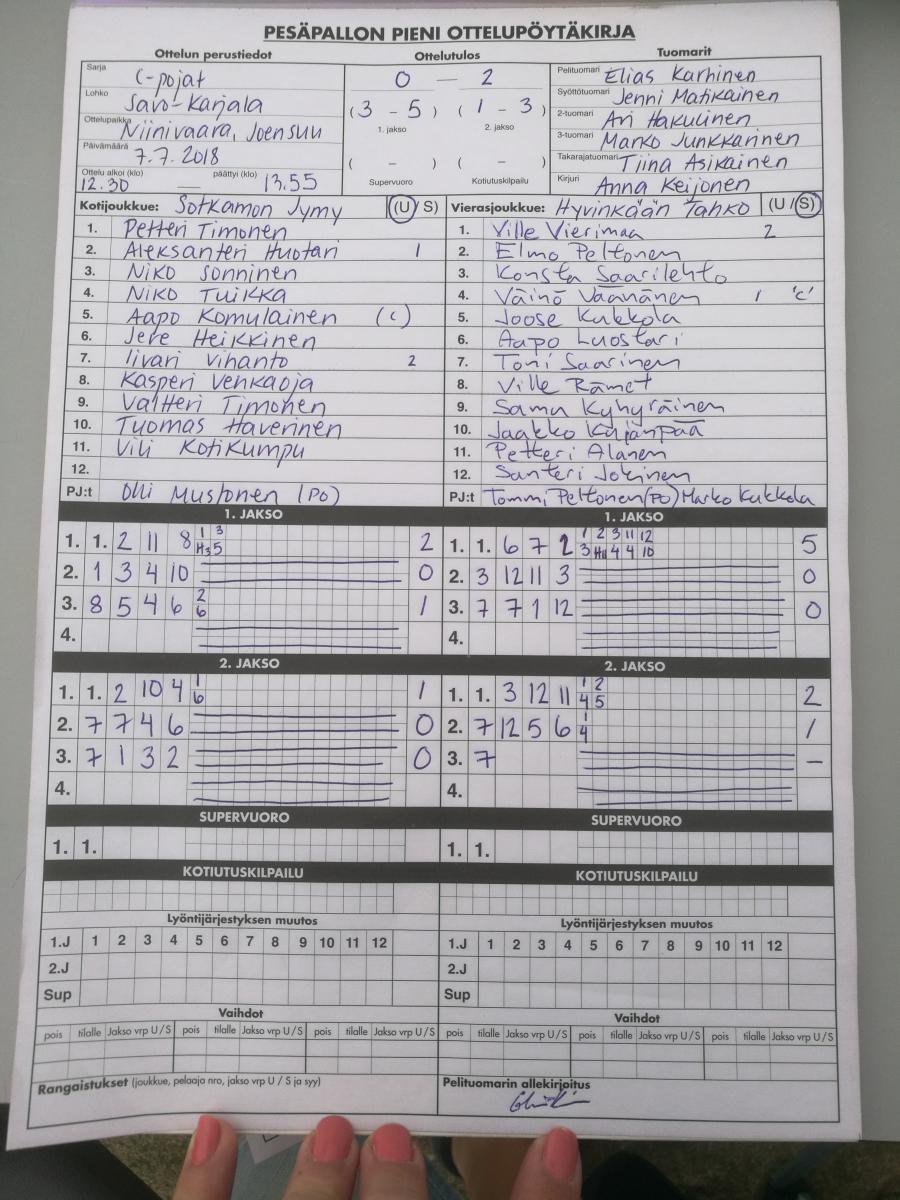 PESÄPALLON PIENI OTTELUPÖYTÄKIRJA
Ottelun perustiedot
Sarja C-pojat
Lohko Savo-Karjala
Ottelupaikka Niinivaara, Joensuu
Päivämäärä 7.7.2018
Ottelu alkoi (klo) päättyi (klo)
12.30 — 13.55
Ottelutulos
0 — 2
(3 - 5) (1 - 3)
1. jakso 2. jakso
( - ) ( - )
Supervuoro Kotiutuskilpailu
Tuomarit
Pelituomari Elias Karhinen
Syöttötuomari Jenni Matikainen
2-tuomari Ari Hakulinen
3-tuomari Marko Junkkarinen
Takarajatuomari Tiina Asikainen
Kirjuri Anna Keijonen
Kotijoukkue: Sotkamon Jymy (U / S)
1. Petteri Timonen
2. Aleksanteri Huotari 1
3. Niko Sonninen
4. Niko Tuikka
5. Aapo Komulainen (c)
6. Jere Heikkinen
7. Iivari Vihanto 2
8. Kasperi Venkaoja
9. Valtteri Timonen
10. Tuomas Haverinen
11. Vili Kotikumpu
12.
PJ:t Olli Mustonen (PO)
Vierasjoukkue: Hyvinkään Tahko (U / S)
1. Ville Vierimaa 2
2. Elmo Peltonen
3. Konsta Saarilehto
4. Väinö Väänänen 1 'c'
5. Joose Kukkola
6. Aapo Luostari
7. Toni Saarinen
8. Ville Rämet
9. Samu Kyhyräinen
10. Jaakko Kujanpää
11. Petteri Alanen
12. Santeri Jokinen
PJ:t Tommi Peltonen (PO) Marko Kukkola
1. JAKSO
1. 1. 2 11 8 1 3 2
H3 5
2. 1 3 4 10 0
3. 8 5 4 6 2 1
6
4.
1. JAKSO
1. 1. 6 7 2 1 2 3 11 12 5
3 H11 4 4 10
2. 3 12 11 3 0
3. 7 7 1 12 0
4.
2. JAKSO
1. 1. 2 10 4 1 1
6
2. 7 7 4 6 0
3. 7 1 3 2 0
4.
2. JAKSO
1. 1. 3 12 11 1 2 2
4 5
2. 7 12 5 6 1 1
4
3. 7 —
4.
SUPERVUORO
1. 1.
SUPERVUORO
1. 1.
KOTIUTUSKILPAILU
KOTIUTUSKILPAILU
Lyöntijärjestyksen muutos
1.J 1 2 3 4 5 6 7 8 9 10 11 12
2.J
Sup
Lyöntijärjestyksen muutos
1.J 1 2 3 4 5 6 7 8 9 10 11 12
2.J
Sup
Vaihdot
pois tilalle Jakso vrp U/S pois tilalle Jakso vrp U/S pois tilalle Jakso vrp U/S
Vaihdot
pois tilalle Jakso vrp U/S pois tilalle Jakso vrp U/S pois tilalle Jakso vrp U/S
Rangaistukset (joukkue, pelaaja nro, jakso vrp U / S ja syy)
Pelituomarin allekirjoitus